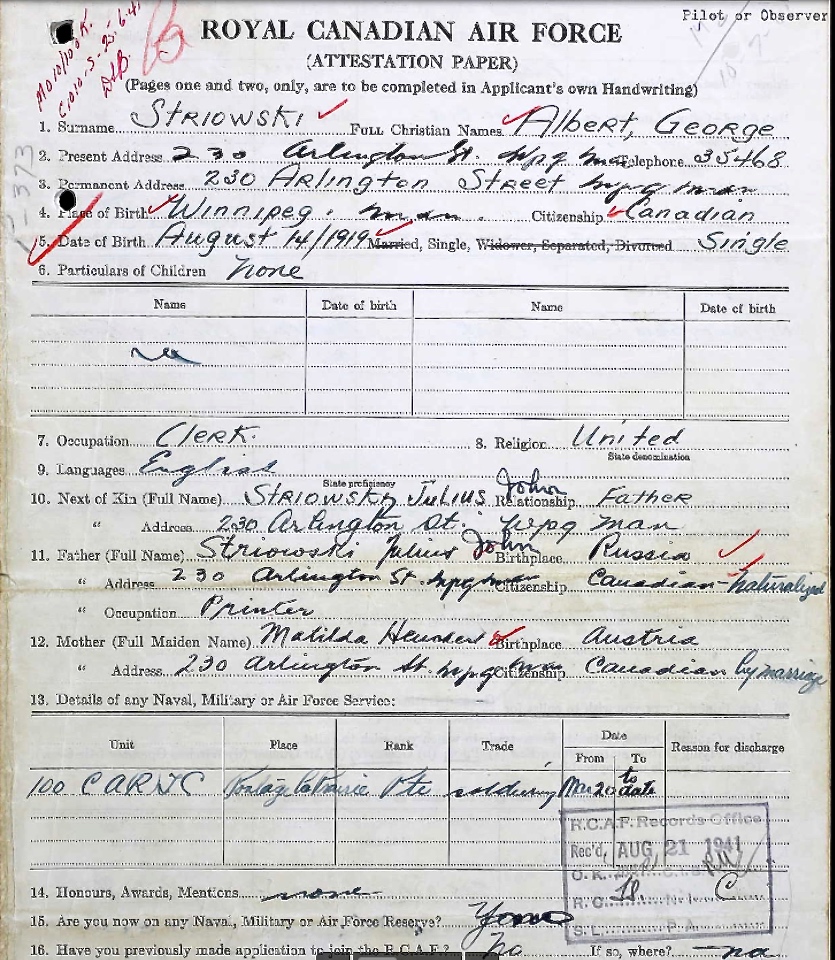 Pilot or Observer
M.O. 10/10 O.K.
C10.10.S-25-6-41
DLB.
ROYAL CANADIAN AIR FORCE
(ATTESTATION PAPER)
(Pages one and two, only, are to be completed in Applicant's own Handwriting)
1. Surname STRIOWSKI Full Christian Names Albert, George
2. Present Address 230 Arlington St. Wpg Man Telephone 35468
3. Permanent Address 230 Arlington Street Wpg man
4. Place of Birth Winnipeg. man. Citizenship Canadian
5. Date of Birth August 14/1919 Married, Single, Widower, Separated, Divorced Single
6. Particulars of Children none
Name Date of birth Name Date of birth
7. Occupation Clerk. 8. Religion United
State denomination
9. Languages English
State proficiency
10. Next of Kin (Full Name) STRIOWSKI JULIUS John Relationship Father
" Address 230 Arlington St. Wpg man
11. Father (Full Name) Striowski Julius John Birthplace Russia
" Address 230 Arlington St. Wpg man Citizenship Canadian-Naturalized
" Occupation Printer
12. Mother (Full Maiden Name) Matilda Birthplace Austria
" Address 230 Arlington St. Wpg Man Citizenship Canadian by marriage
13. Details of any Naval, Military or Air Force Service:
Unit Place Rank Trade Date Reason for discharge
From To
100 CA Portage la Prairie Pte soldiering 20 to date
R.C.A.F. Records Office
Rec'd, AUG 21 1941
14. Honours, Awards, Mentions none
15. Are you now on any Naval, Military or Air Force Reserve?
16. Have you previously made application to join the R.C.A.F.? no If so, where? na